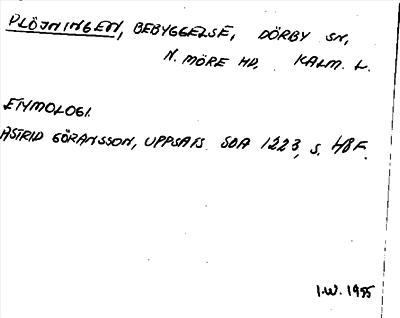 PLÖJNINGEN, BEBYGGELSE, DÖRBY SN,
N. MÖRE HD. KALM. L.
ETYMOLOGI.
ASTRID GÖRANSSON, UPPSATS SOA 1223, S. 48F.
I.W. 1955